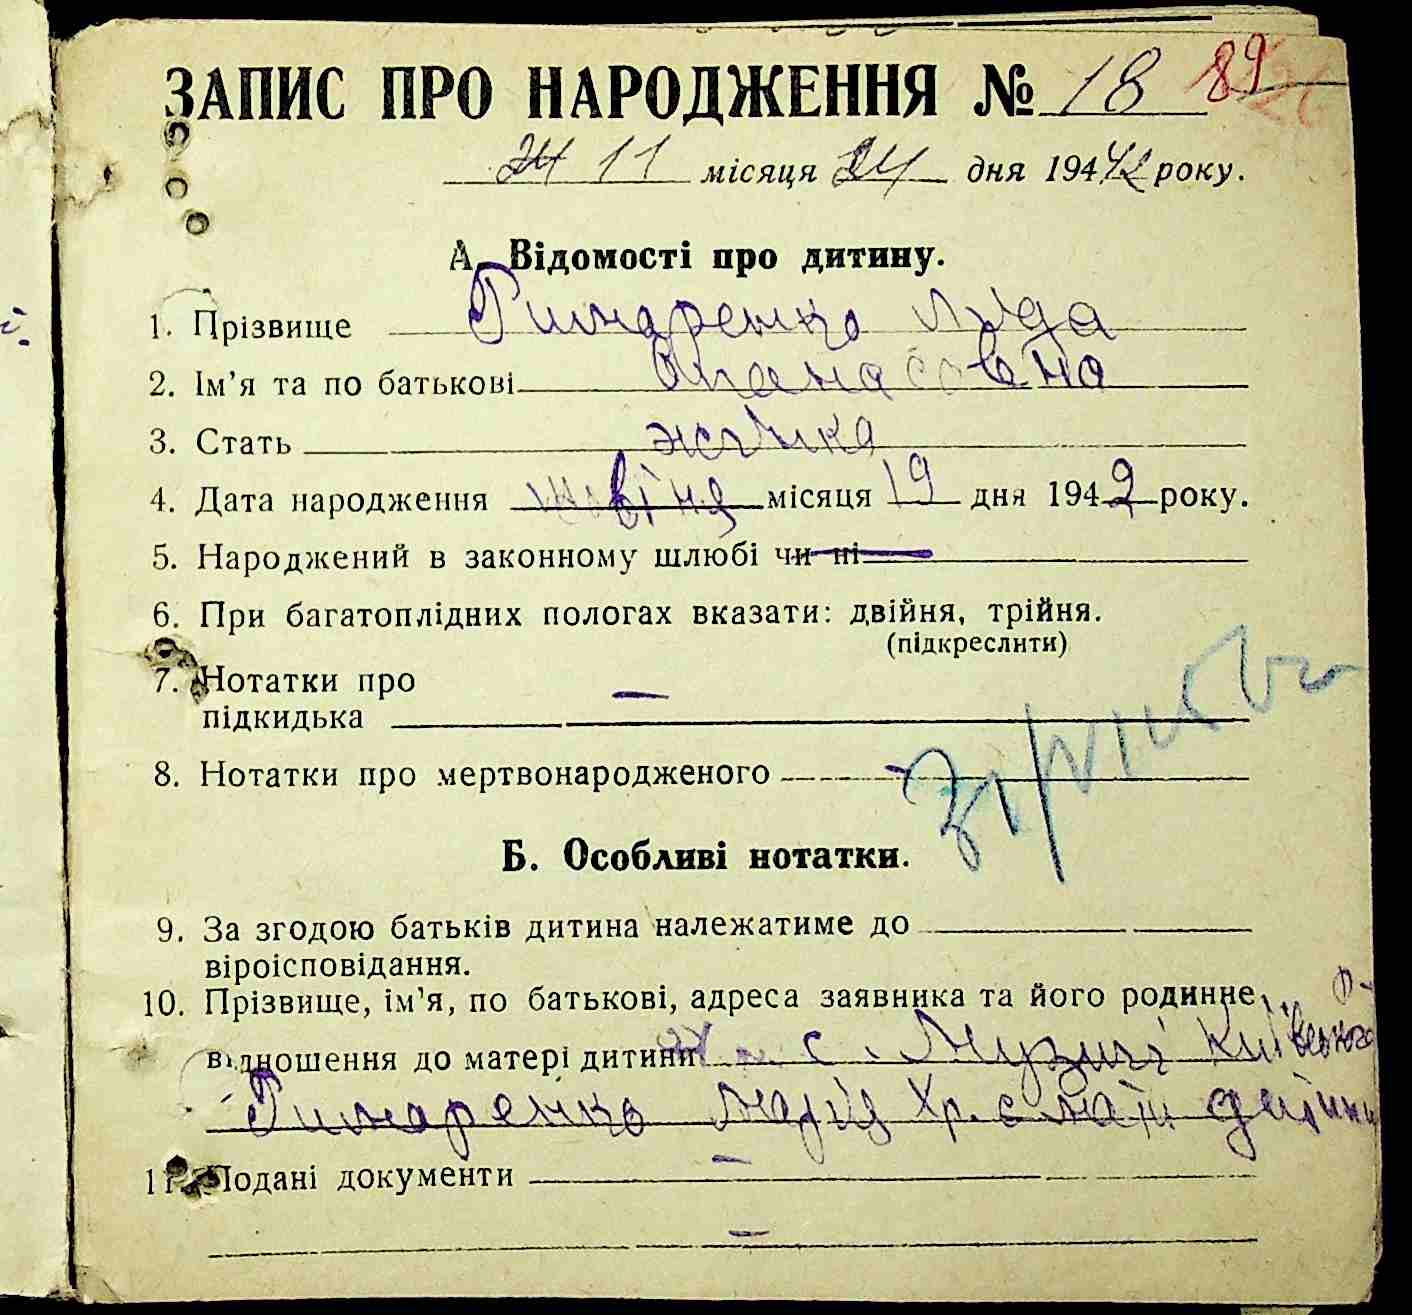 ЗАПИС ПРО НАРОДЖЕННЯ № 18 89
11 місяця 24 дня 1942 року.
А. Відомості про дитину.
1. Прізвище Гинаренко Ліда
2. Ім'я та по батькові Опанасовна
3. Стать жінка
4. Дата народження місяця 19 дня 1942 року.
5. Народжений в законному шлюбі чи ні
6. При багатоплідних пологах вказати: двійня, трійня.
(підкреслити)
7. Нотатки про —
підкидька
8. Нотатки про мертвонародженого -
Б. Особливі нотатки.
9. За згодою батьків дитина належатиме до
віроісповідання.
10. Прізвище, ім'я, по батькові, адреса заявника та його родинне
відношення до матері дитини с. Музичі Київського
Гинаренко Марія Хр. є мати дитини
11. Подані документи —
—